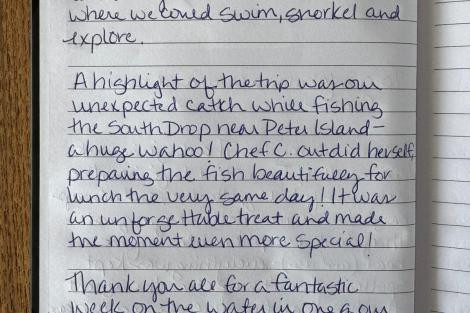 where we could swim, snorkel and
explore.
A highlight of the trip was our
unexpected catch while fishing
the South Drop near Peter Island -
a huge wahoo! Chef C. outdid herself,
preparing the fish beautifully for
lunch the very same day! It was
an unforgettable treat and made
the moment even more special!
Thank you all for a fantastic
week on the water in one of our